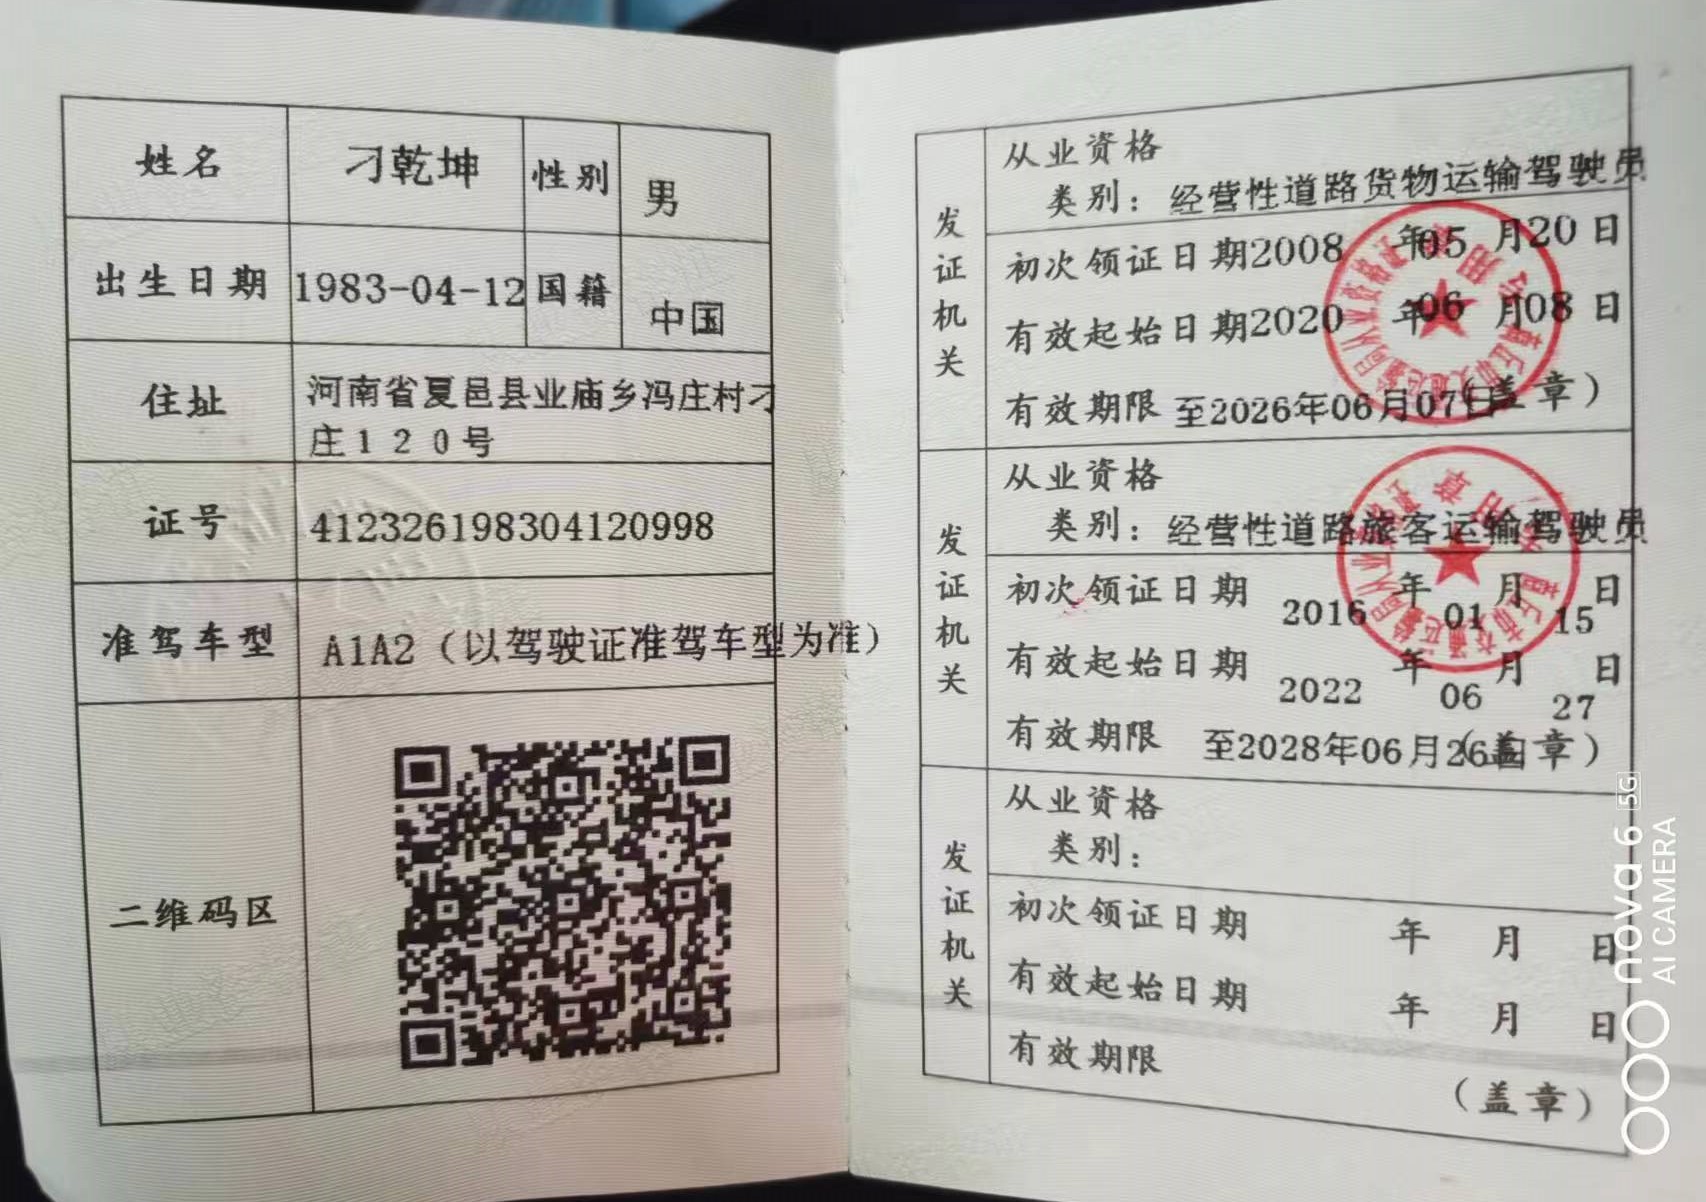 姓名 刁乾坤 性别 男
出生日期 1983-04-12 国籍 中国
住址 河南省夏邑县业庙乡冯庄村刁
庄120号
证号 412326198304120998
准驾车型 A1A2（以驾驶证准驾车型为准）
二维码区
发证机关
从业资格
类别：经营性道路货物运输驾驶员
初次领证日期2008年05月20日
有效起始日期2020年06月08日
有效期限 至2026年06月07日（盖章）
发证机关
从业资格
类别：经营性道路旅客运输驾驶员
初次领证日期 2016年01月15日
有效起始日期 2022年06月27日
有效期限 至2028年06月26日（盖章）
发证机关
从业资格
类别：
初次领证日期 年 月 日
有效起始日期 年 月 日
有效期限
（盖章）
nova 6 5G
AI CAMERA